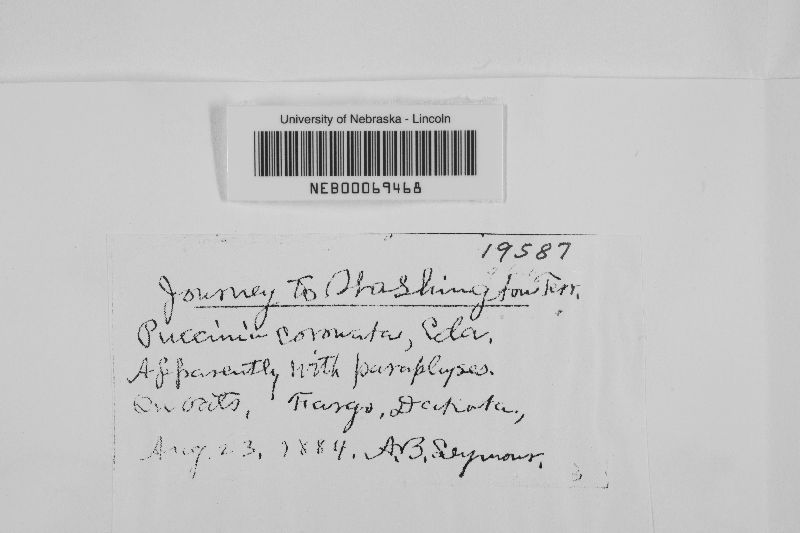 University of Nebraska - Lincoln
NEB00069468
19587
Journey to Washington Terr.
Puccinia coronata, Cda.
Apparently with paraphyses.
On oats, Fargo, Dakota,
Aug. 23, 1884. A.B. Seymour.